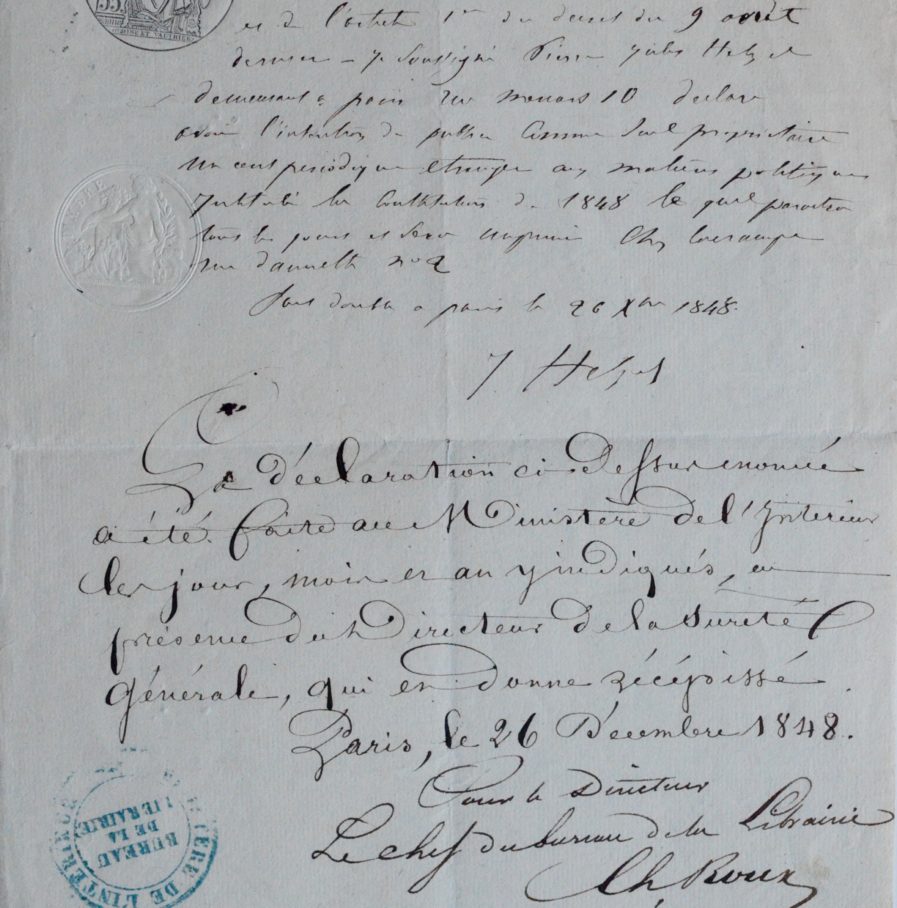 et de l'article 1er du decret du 9 août
dernier – Je soussigné Pierre Jules Hetzel
demeurant a paris rue 10 declare
avoir l'intention de publier comme seul propriétaire
un ecrit periodique etranger aux matieres politiques
Intitulé la Constitution de 1848 le quel paraitra
tous les jours et sera imprimé chez
rue n° 2
a paris le 26 Xbre 1848.
J Hetzel
La déclaration ci-Dessus énoncée
a été faite au Ministère de l'Intérieur
les jour, mois et an y indiqués, en
présence du Directeur De la Sureté
Générale, qui en Donne récépissé
Paris, le 26 Décembre 1848.
Pour le Directeur
Le chef du bureau de la Librairie
Ch Roux
MINISTERE DE L'INTERIEUR
BUREAU
DE LA
LIBRAIRIE